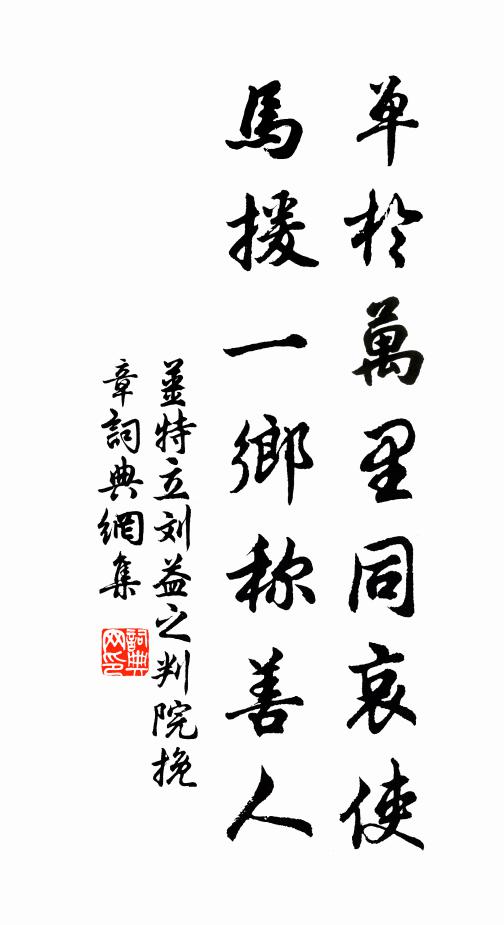 单於萬里同哀使
馬援一鄉称善人
姜特立刘益之判院挽
章詞典網集
詞典网印